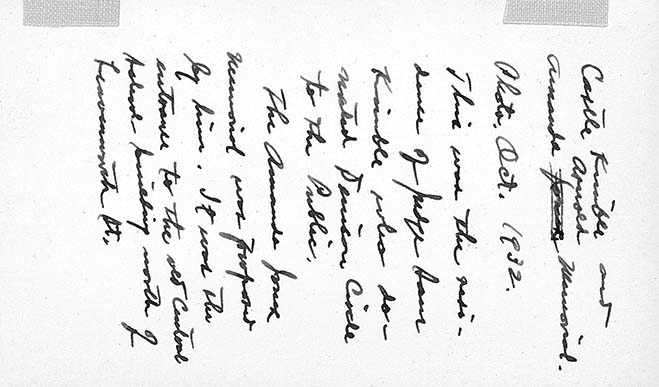 Castle Kimble and
Arnold
Amanda Memorial.
Photo, Oct. 1932.
This was the resi-
dence of Judge Sam
Kimble who do-
nated Denison Circle
to the Public.
The Amanda Jones
Memorial was proposed
by him. It was the
entrance to the old Central
School building north of
Leavenworth St.